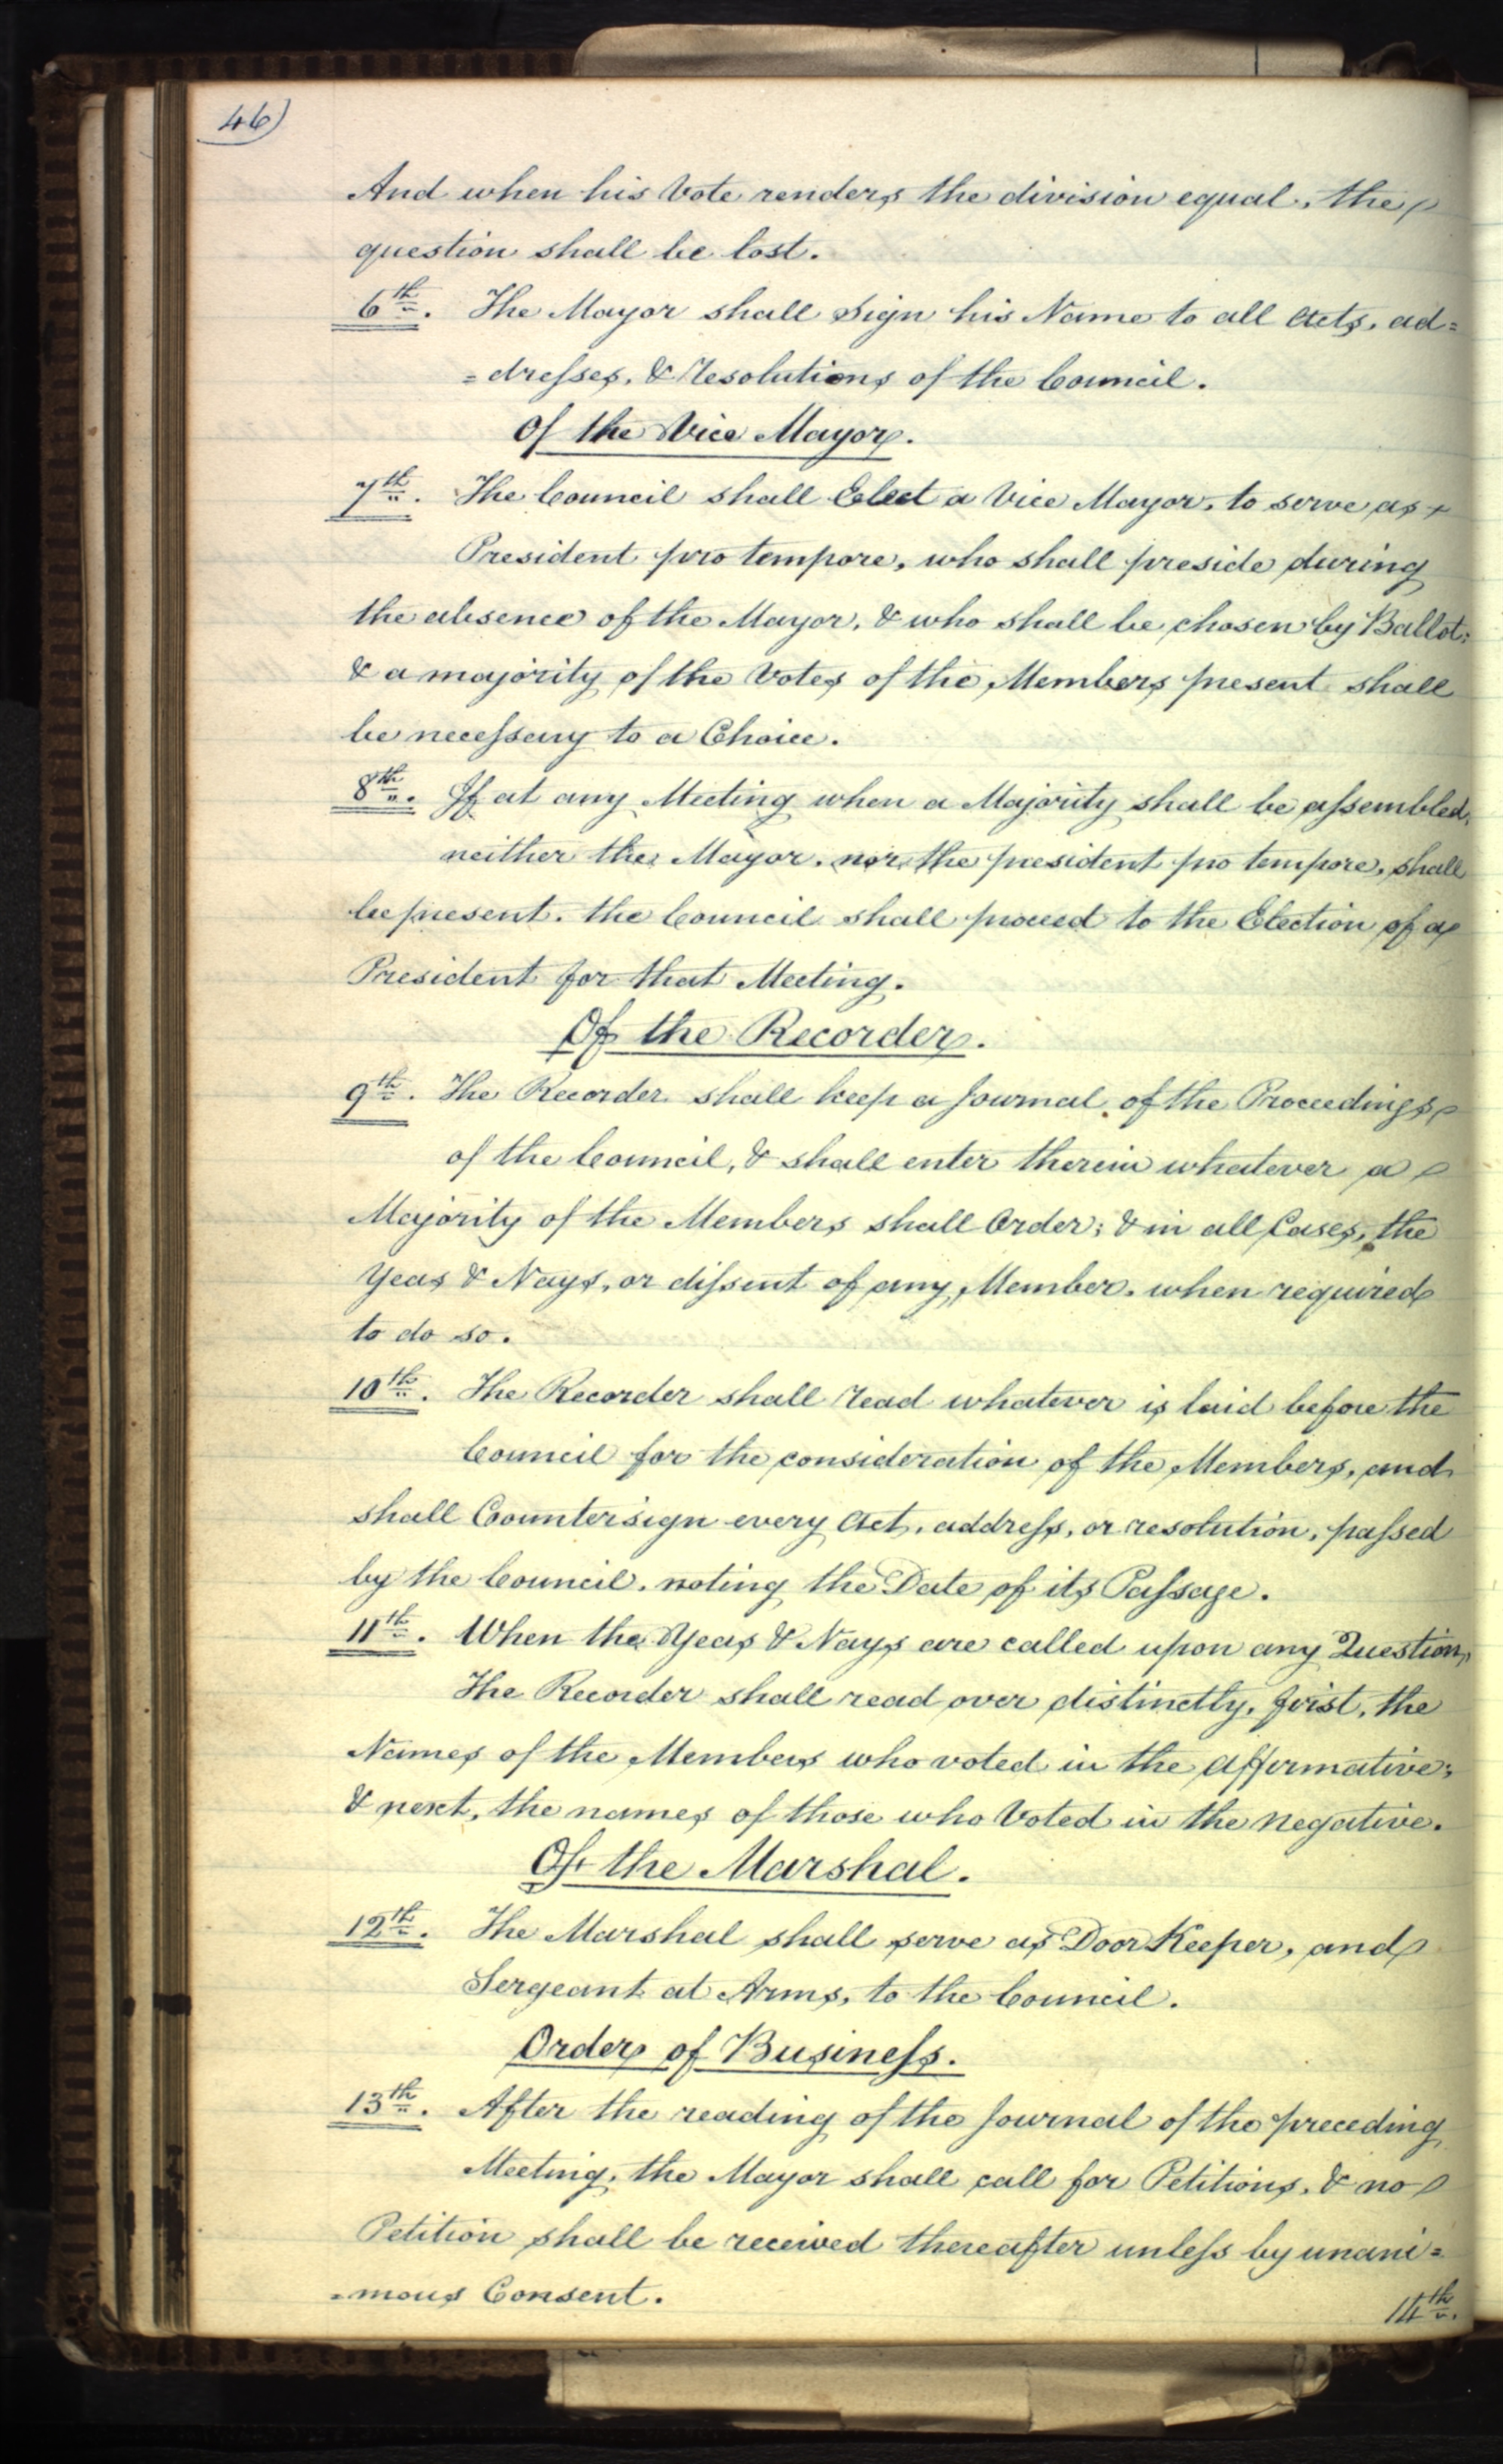 46)
And when his Vote renders the division equal, the
question shall be lost.
6th. The Mayor shall Sign his Name to all Acts, ad=
=dresses, & resolutions of the Council.
Of the Vice Mayor.
7th. The Council shall Elect a Vice Mayor, to serve as
President pro tempore, who shall preside during
the absence of the Mayor, & who shall be chosen by Ballot;
& a majority of the Votes of the Members present shall
be necessary to a Choice.
8th. If at any Meeting when a Majority shall be assembled,
neither the Mayor, nor the president pro tempore, shall
be present, the Council shall proceed to the Election of a
President for that Meeting.
Of the Recorder.
9th. The Recorder shall keep a Journal of the Proceedings
of the Council, & shall enter therein whatever a
Majority of the Members shall Order; & in all Cases, the
Yeas & Nays, or dissent of any Member, when required
to do so.
10th. The Recorder shall read whatever is laid before the
Council for the consideration of the Members, and
shall Countersign every Act, address, or resolution, passed
by the Council, noting the Date of its Passage.
11th. When the Yeas & Nays are called upon any Question,
The Recorder shall read over distinctly, first, the
Names of the Members who voted in the affirmative;
& next, the names of those who Voted in the negative.
Of the Marshal.
12th. The Marshal shall serve as Door Keeper, and
Sergeant at Arms, to the Council.
Order of Business.
13th. After the reading of the Journal of the preceding
Meeting, the Mayor shall call for Petitions, & no
Petition shall be received thereafter unless by unani=
=mous Consent.
14th.